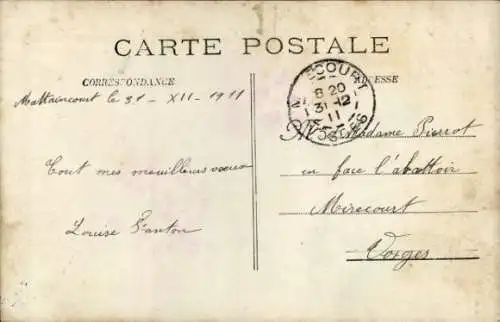 CARTE POSTALE
CORRESPONDANCE
ADRESSE
Mattaincourt le 31 - XII - 1911
Tout mes meuilleurs vœux
Louise Fanton
MIRECOURT
8 20
31 -12
11
VOSGES
Madame Pierrot
en face l'abattoir
Mirecourt
Vosges